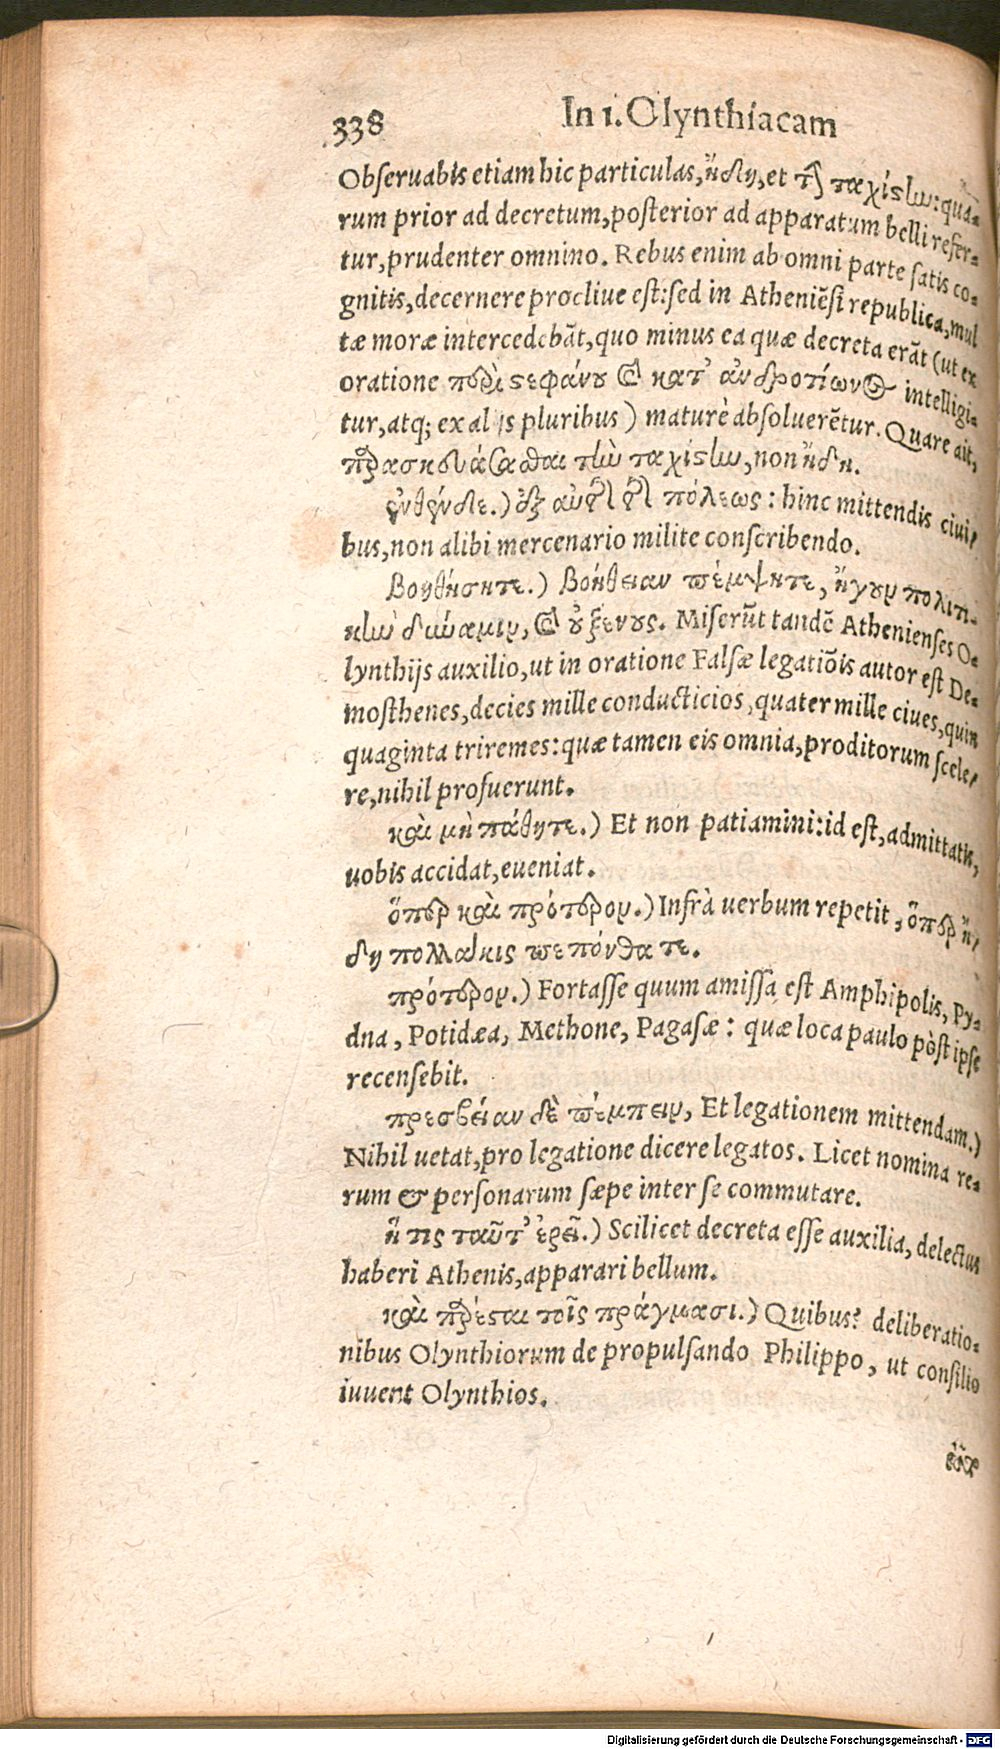 338 In 1. Olynthiacam
Obseruabis etiam hic particulas, ἤδη, et τὴν ταχίστην: qua-
rum prior ad decretum, posterior ad apparatum belli refer-
tur, prudenter omnino. Rebus enim ab omni parte satis co-
gnitis, decernere procliue est: sed in Atheniẽsi republica, mul
tæ moræ intercedebãt, quo minus ea quæ decreta erãt (ut ex
oratione περὶ στεφάνου καὶ κατ' ἀνδροτίωνος intelligi-
tur, atq; ex alijs pluribus) maturè absoluerẽtur. Quare ait,
παρασκευάσασθαι τὴν ταχίστην, non ἤδη.
ἐνθένδε.) ἐξ αὐτῆς τῆς πόλεως: hinc mittendis ciui-
bus, non alibi mercenario milite conscribendo.
Βοηθήσητε.) βοήθειαν πέμψητε, ἤγουν πολιτι-
κὴν δύναμιν, καὶ οὐ ξένους. Miserũt tandẽ Athenienses O-
lynthijs auxilio, ut in oratione Falsæ legatiõis autor est De-
mosthenes, decies mille conducticios, quater mille ciues, quin
quaginta triremes: quæ tamen eis omnia, proditorum scele-
re, nihil profuerunt.
καὶ μὴ πάθητε.) Et non patiamini: id est, admittatis,
uobis accidat, eueniat.
ὅπερ καὶ πρότερον.) Infrà uerbum repetit, ὅπερ ἤ-
δη πολλάκις πεπόνθατε.
πρότερον.) Fortasse quum amissa est Amphipolis, Py-
dna, Potidæa, Methone, Pagasæ: quæ loca paulo pòst ipse
recensebit.
πρεσβείαν δὲ πέμπειν, Et legationem mittendam.)
Nihil uetat, pro legatione dicere legatos. Licet nomina re-
rum & personarum sæpe inter se commutare.
ἥ τις ταῦτ' ἐρεῖ.) Scilicet decreta esse auxilia, delectus
haberi Athenis, apparari bellum.
καὶ παρέσται τοῖς πράγμασι.) Quibus? deliberatio-
nibus Olynthiorum de propulsando Philippo, ut consilio
iuuent Olynthios.
Digitalisierung gefördert durch die Deutsche Forschungsgemeinschaft - DFG